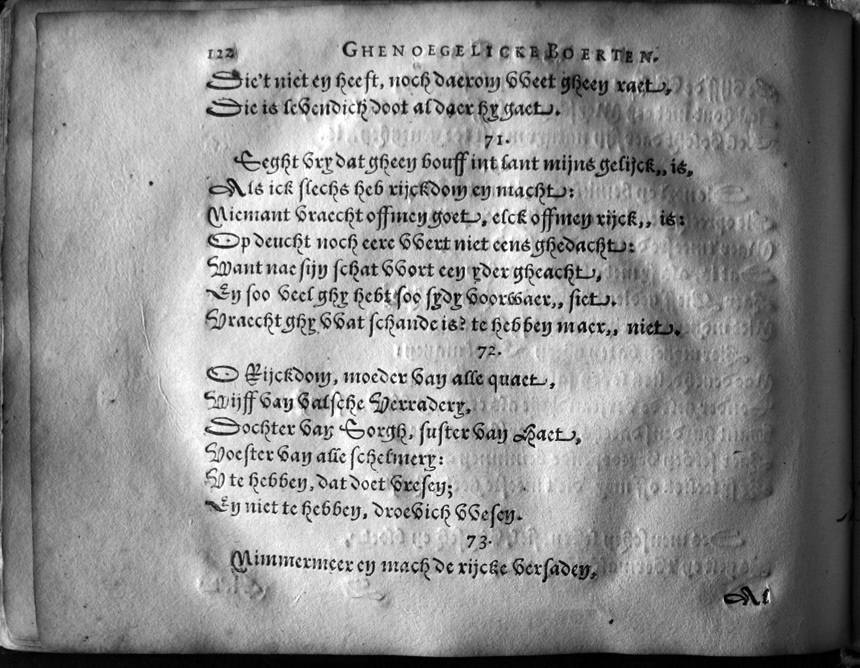 122 GHENOEGELICKE BOERTEN.
Die't niet en heeft, noch daerom VVeet gheen raet,
Die is leVendich doot al daer hy gaet.
71.
Seght Vry dat gheen bouff int lant mijns gelijck,, is,
Als ick slechs heb rijckdom en macht:
Niemant Vraecht off men goet, elck off men rijck,, is:
Op deucht noch eere VVert niet eens ghedacht:
Want nae sijn schat VVort een yder gheacht,
En soo Veel ghy hebt soo sydy Voorwaer,, siet.
Vraecht ghy VVat schande is? te hebben maer,, niet.
72.
O Rijckdom, moeder Van alle quaet,
Wijff Van Valsche Verradery,
Dochter Van Sorgh, suster Van Haet,
Voester Van alle schelmery:
V te hebben, dat doet Vresen;
En niet te hebben, droeVich VVesen.
73.
Nimmermeer en mach de rijcke Versaden,
Al